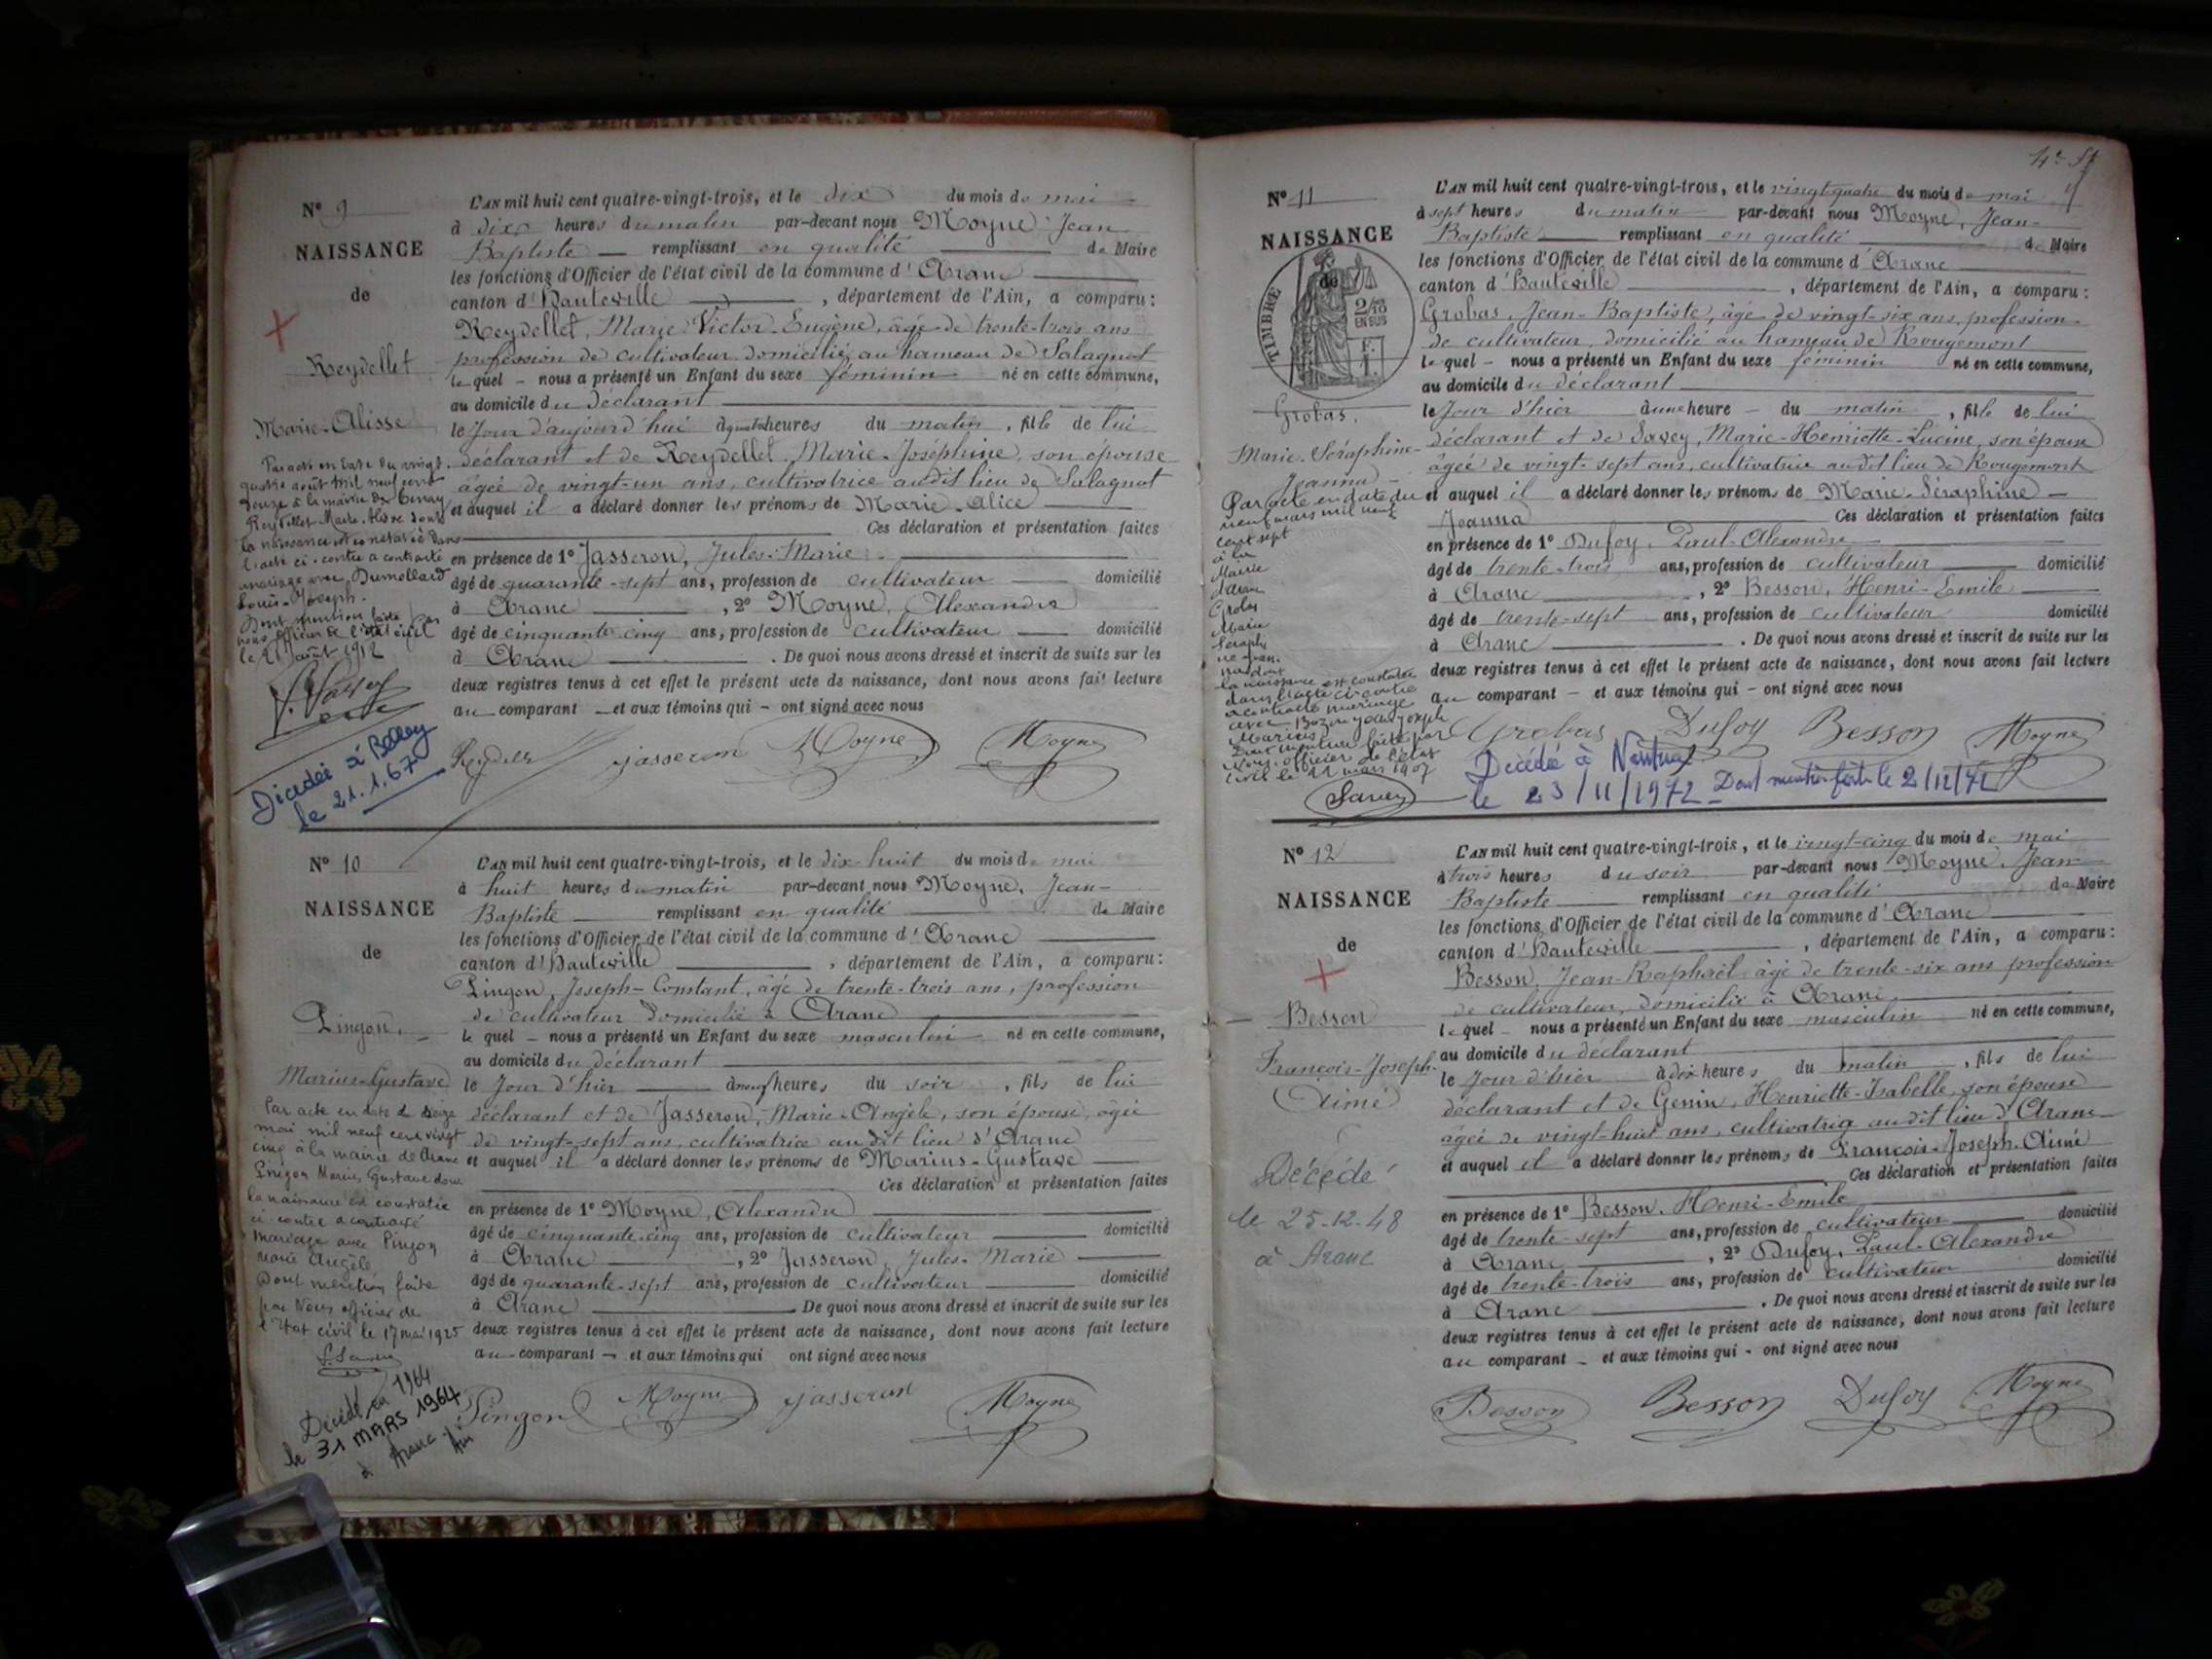 N° 9
NAISSANCE
de
Reydellet
Marie-Alisse
Par acte en date du vingt
quatre août mil neuf cent
douze à la mairie de Tenay
Reydellet Marie-Alisse dont
la naissance est constatée dans
l'acte ci-contre a contracté
mariage avec Dumollard
Louis-Joseph.
Dont mention faite par
nous officier de l'état civil
le 26 août 1912
Décédée à Belley
le 21.1.67
L'AN mil huit cent quatre-vingt-trois, et le dix du mois de mai
à dix heures du matin par-devant nous Moyne Jean
Baptiste remplissant en qualité de Maire
les fonctions d'Officier de l'état civil de la commune d'Aranc
canton d'Hauteville, département de l'Ain, a comparu:
Reydellet, Marie Victor Eugène, âgé de trente-trois ans
profession de cultivateur domicilié au hameau de Salagnot
lequel - nous a présenté un Enfant du sexe féminin né en cette commune,
au domicile du déclarant
le Jour d'aujourd'hui à quatre heures du matin, fille de lui
déclarant et de Reydellet Marie-Joséphine, son épouse
âgée de vingt-un ans, cultivatrice audit lieu de Salagnot
et auquel il a déclaré donner les prénoms de Marie-Alice
Ces déclaration et présentation faites
en présence de 1° Jasseron, Jules-Marie
âgé de quarante-sept ans, profession de cultivateur domicilié
à Aranc, 2° Moyne, Alexandre
âgé de cinquante cinq ans, profession de cultivateur domicilié
à Aranc. De quoi nous avons dressé et inscrit de suite sur les
deux registres tenus à cet effet le présent acte de naissance, dont nous avons fait lecture
au comparant - et aux témoins qui - ont signé avec nous
Jasseron Moyne Moyne
N° 10
NAISSANCE
de
Pingon.
Marius-Gustave
Par acte en date du seize
mai mil neuf cent vingt
cinq à la mairie de Aranc
Pingon Marius Gustave dont
la naissance est constatée
ci-contre a contracté
mariage avec Pingon
Marie Angèle
Dont mention faite
par Nous officier de
l'état civil le 17 mai 1925
Décédé en 1964
le 31 MARS 1964
à Aranc Ain
L'AN mil huit cent quatre-vingt-trois, et le dix-huit du mois de mai
à huit heures du matin par-devant nous Moyne, Jean-
Baptiste remplissant en qualité de Maire
les fonctions d'Officier de l'état civil de la commune d'Aranc
canton d'Hauteville, département de l'Ain, a comparu:
Pingon, Joseph-Constant, âgé de trente-trois ans, profession
de cultivateur domicilié à Aranc
lequel - nous a présenté un Enfant du sexe masculin né en cette commune,
au domicile du déclarant
le Jour d'hier à neuf heures du soir, fils de lui
déclarant et de Jasseron, Marie-Angèle, son épouse, âgée
de vingt-sept ans, cultivatrice au dit lieu d'Aranc
et auquel il a déclaré donner les prénoms de Marius-Gustave
Ces déclaration et présentation faites
en présence de 1° Moyne, Alexandre
âgé de cinquante-cinq ans, profession de cultivateur domicilié
à Aranc, 2° Jasseron, Jules-Marie
âgé de quarante-sept ans, profession de cultivateur domicilié
à Aranc. De quoi nous avons dressé et inscrit de suite sur les
deux registres tenus à cet effet le présent acte de naissance, dont nous avons fait lecture
au comparant - et aux témoins qui ont signé avec nous
Pingon Moyne Jasseron Moyne
N° 11
NAISSANCE
de
TIMBRE
2/10
EN SUS
Grobas.
Marie-Séraphine-
Joanna
Par acte en date du
neuf mars mil neuf
cent sept
à la
Mairie
d'Aranc
Grobas
Marie
Séraphi
ne Joan
na dont
la naissance est constatée
dans l'acte ci-contre
a contracté mariage
avec Bozon Jean Joseph
Marius
Dont mention faite par
Nous officier de l'état
civil le 11 mars 1907
Savey
L'AN mil huit cent quatre-vingt-trois, et le vingt-quatre du mois de mai
à sept heures du matin par-devant nous Moyne, Jean-
Baptiste remplissant en qualité de Maire
les fonctions d'Officier de l'état civil de la commune d'Aranc
canton d'Hauteville, département de l'Ain, a comparu:
Grobas, Jean-Baptiste, âgé de vingt-six ans, profession
de cultivateur, domicilié au hameau de Rougemont
lequel - nous a présenté un Enfant du sexe féminin né en cette commune,
au domicile du déclarant
le Jour d'hier à une heure - du matin, fille de lui
déclarant et de Savey, Marie-Henriette-Lucine, son épouse
âgée de vingt-sept ans, cultivatrice audit lieu de Rougemont
et auquel il a déclaré donner les prénoms de Marie-Séraphine-
Joanna Ces déclaration et présentation faites
en présence de 1° Dufoy, Paul-Alexandre
âgé de trente-trois ans, profession de cultivateur domicilié
à Aranc, 2° Besson, Henri-Emile
âgé de trente-sept ans, profession de cultivateur domicilié
à Aranc. De quoi nous avons dressé et inscrit de suite sur les
deux registres tenus à cet effet le présent acte de naissance, dont nous avons fait lecture
au comparant - et aux témoins qui - ont signé avec nous
Grobas Dufoy Besson Moyne
Décédée à Nantua
le 23/11/1972 - Dont mention faite le 2/12/72
N° 12
NAISSANCE
de
Besson
François-Joseph-
Aimé
Décédé
le 25-12-48
à Aranc
L'AN mil huit cent quatre-vingt-trois, et le vingt-cinq du mois de mai
à trois heures du soir par-devant nous Moyne, Jean-
Baptiste remplissant en qualité de Maire
les fonctions d'Officier de l'état civil de la commune d'Aranc
canton d'Hauteville, département de l'Ain, a comparu:
Besson, Jean-Raphaël âgé de trente-six ans profession
de cultivateur, domicilié à Aranc
lequel nous a présenté un Enfant du sexe masculin né en cette commune,
au domicile du déclarant
le Jour d'hier à dix heures du matin, fils de lui
déclarant et de Genin, Henriette-Isabelle, son épouse
âgée de vingt-huit ans, cultivatrice audit lieu d'Aranc
et auquel il a déclaré donner les prénoms de François-Joseph-Aimé
Ces déclaration et présentation faites
en présence de 1° Besson, Henri-Emile
âgé de trente-sept ans, profession de cultivateur domicilié
à Aranc, 2° Dufoy, Paul-Alexandre
âgé de trente-trois ans, profession de cultivateur domicilié
à Aranc. De quoi nous avons dressé et inscrit de suite sur les
deux registres tenus à cet effet le présent acte de naissance, dont nous avons fait lecture
au comparant - et aux témoins qui - ont signé avec nous
Besson Besson Dufoy Moyne